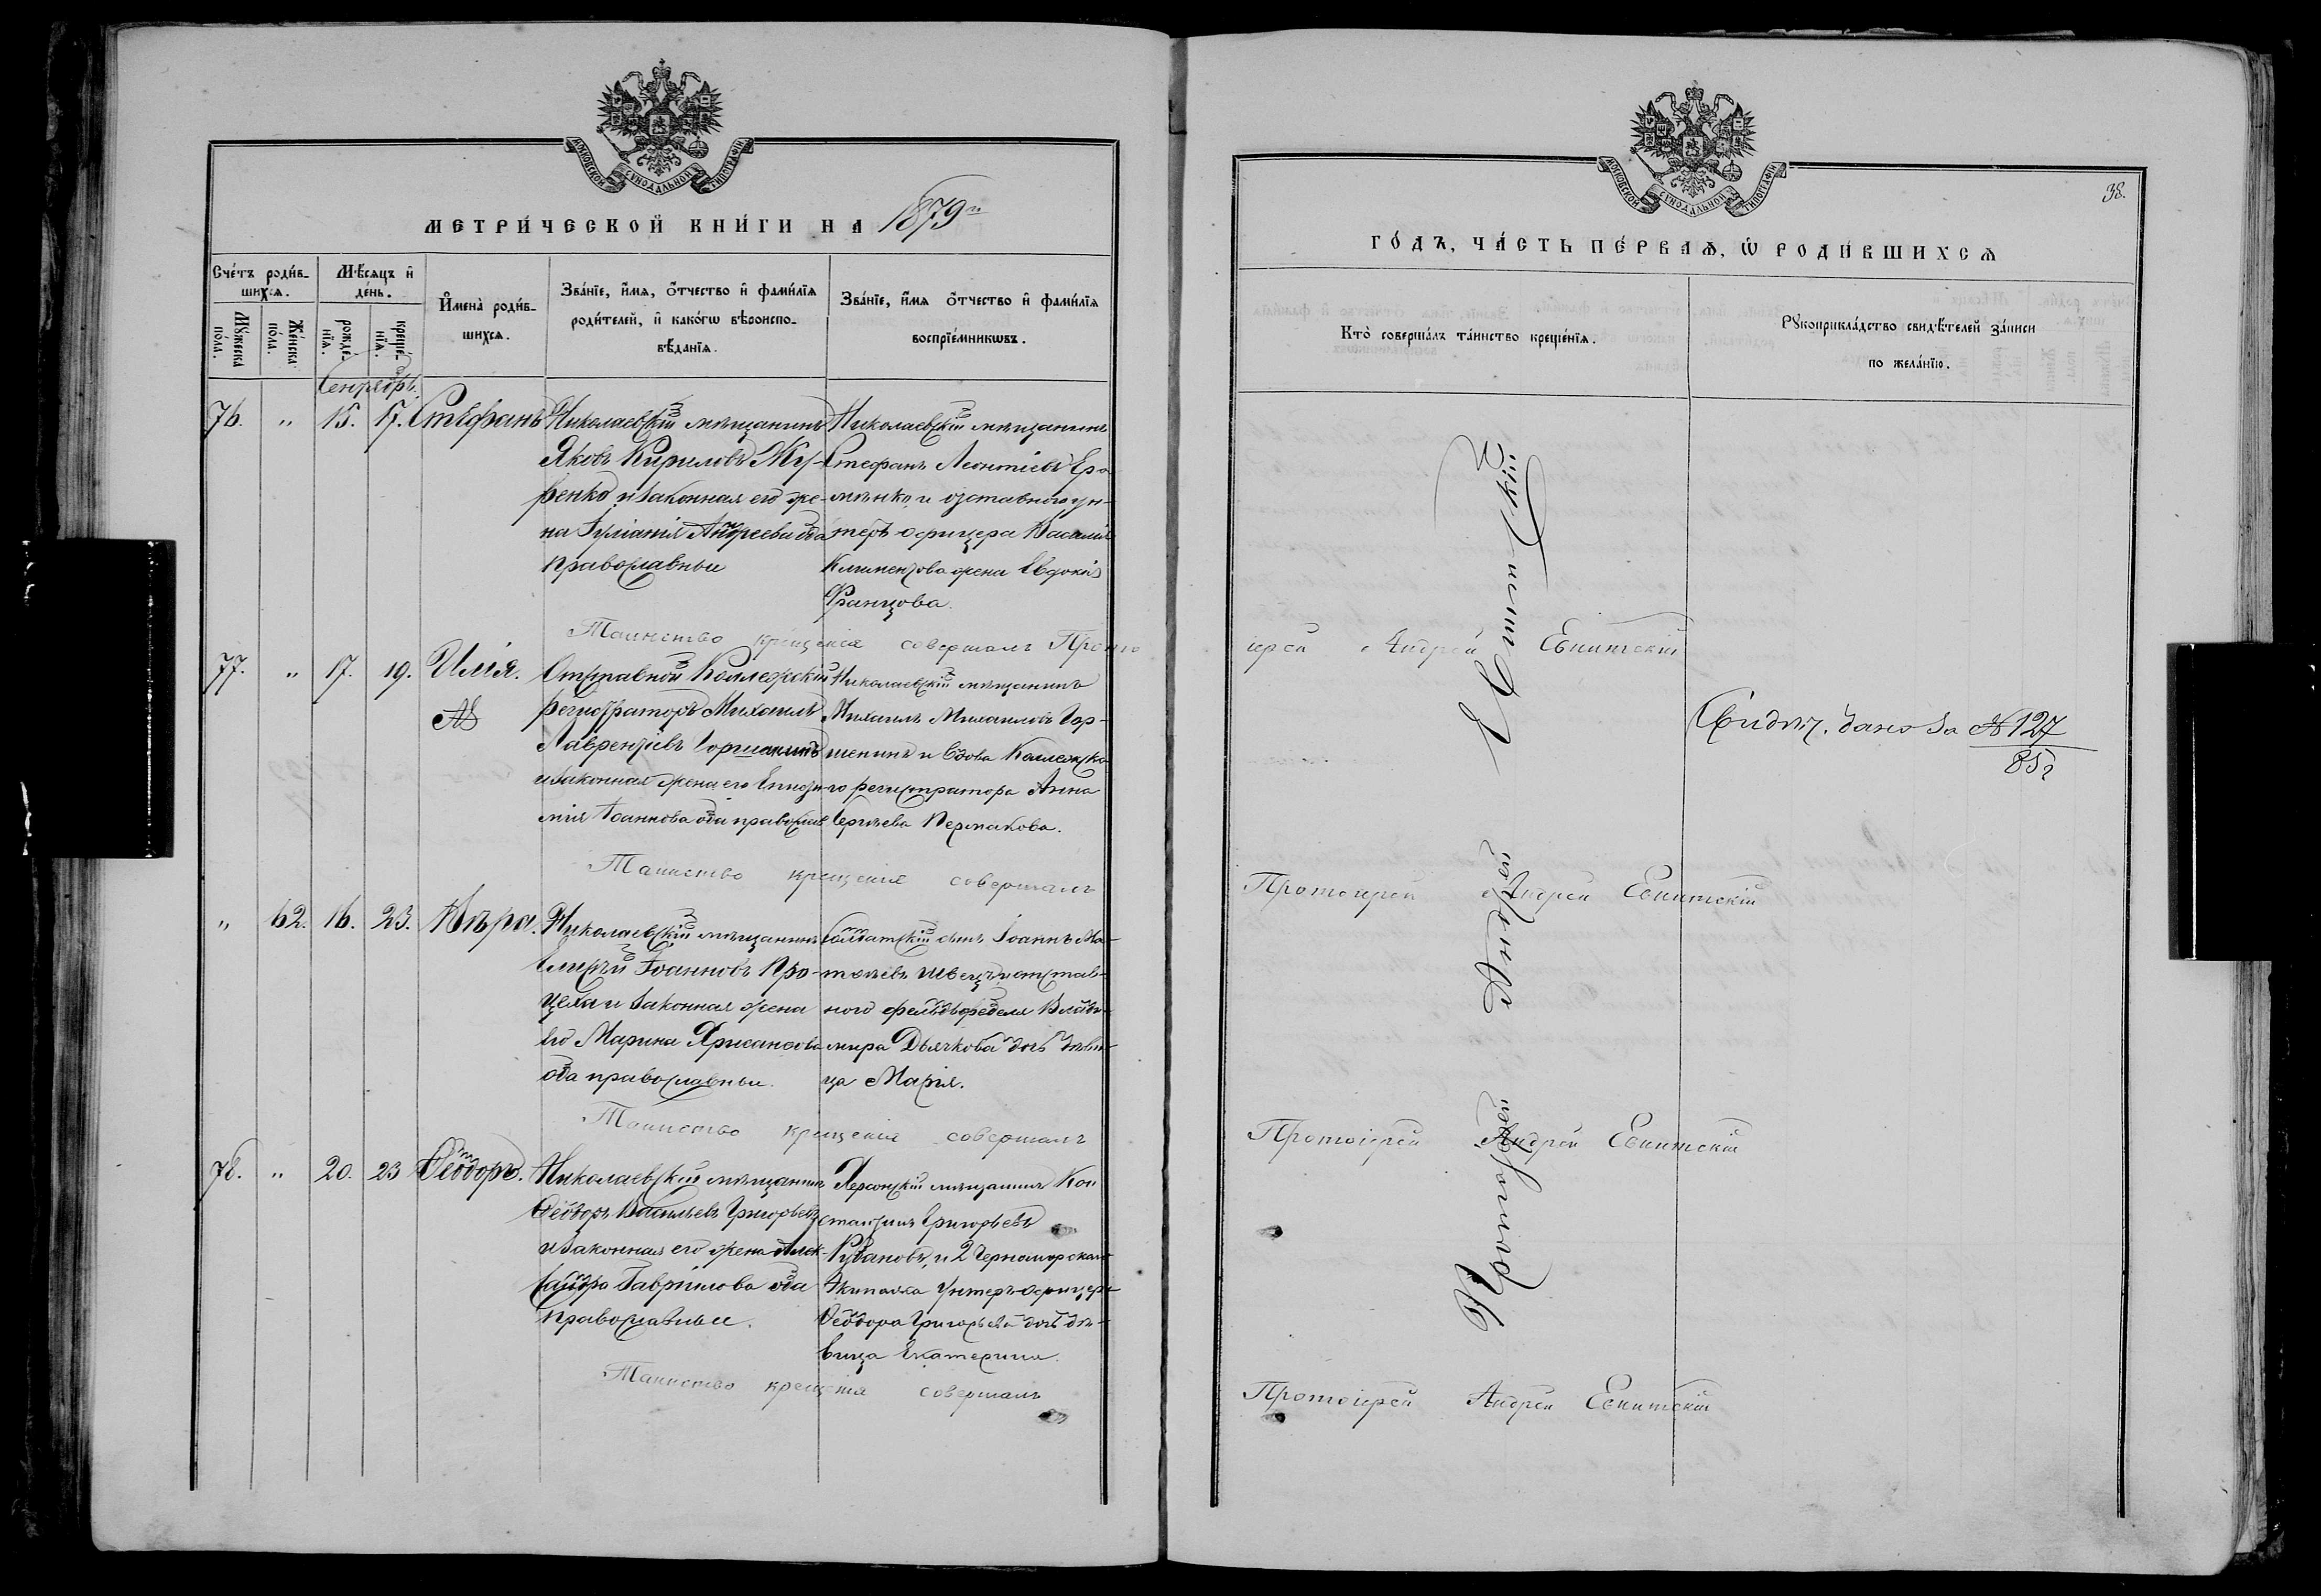 МОСКОВСКОЙ СѴНОДАЛЬНОЙ ТИПОГРАФІИ
МЕТРИ́ЧЕСКОЙ КНИ́ГИ НА 1879й
Сче́тъ роди́в-
шихсѧ.
Мꙋ́жеска
по́ла.
Же́нска
по́ла.
Мѣ́сѧцъ и҆
де́нь.
рожде-
нїѧ.
креще́-
нїѧ.
И҆мена̀ роди́в-
шихсѧ.
Зва́нїе, и҆́мѧ, ѻ҆́тчество и҆ фами́лїѧ
роди́телей, и҆ како́гѡ вѣроиспо-
вѣ́данїѧ.
Зва́нїе, и҆́мѧ ѻ҆́тчество и҆ фами́лїѧ
воспрїе́мникѡвъ.
Сентябрь.
76. " 15. 17. Стефанъ
Николаевскій мѣщанинъ
Яковъ Кириловъ
и законная его же-
на Іуліанія Андреева оба
православные
Николаевскій мѣщанинъ
Стефанъ Леонтіевъ Ере-
мѣнко и отставного ун-
теръ-офицера Василія
Климентова жена Евдокія
Францова.
Таинство крещенія совершалъ Прото
77. " 17. 19. Илія.
Отставной Коллежскій
регистраторъ Михаилъ
Лаврентіевъ Горшанинъ
и законная жена его
Іоаннова оба православ
Николаевскій мѣщанинъ
Михаилъ Михаиловъ Гор-
шенинъ и вдова Коллежска-
го регистратора Анна
Сергѣева Пермакова.
Таинство крещенія совершалъ
" 62. 16. 23. Вѣра.
Николаевскій мѣщанинъ
Іоанновъ Про-
и законная жена
его Марина Хрисанѳова
оба православные.
Солдатскій сынъ Іоаннъ Ма-
твѣевъ Швецъ и отстав-
ного фельдфебеля Влади-
мира Дьячкова дочь дѣви-
ца Марія.
Таинство крещенія совершалъ
78. " 20. 23 Ѳеодоръ.
Николаевскій мѣщанинъ
Ѳеодоръ Васильевъ Григорьевъ
и законная его жена Алек-
сандра Гавриилова оба
православные.
Херсонскій мѣщанинъ Кон
стантинъ Григорьевъ
Рубановъ, и 2 Черноморскаго
Экипажа Унтеръ-офицера
Ѳеодора Григорьева дочь дѣ-
вица Екатерина.
Таинство крещенія совершалъ
МОСКОВСКОЙ СѴНОДАЛЬНОЙ ТИПОГРАФІИ
38.
ГО́ДЪ, ЧА́СТЬ ПЕ́РВАѦ, Ѡ҆ РОДИ́ВШИХСѦ
Кто̀ соверша́лъ та́инство креще́нїѧ.
Рꙋкоприкла́дство свидѣ́телей за́писи
по жела́нїю.
іерей Андрей Евнитскій
Свидѣт. дано за № 127
85 г
Протоіерей Андрей Евнитскій
Протоіерей Андрей Евнитскій
Протоіерей Андрей Евнитскій
Протоіерей